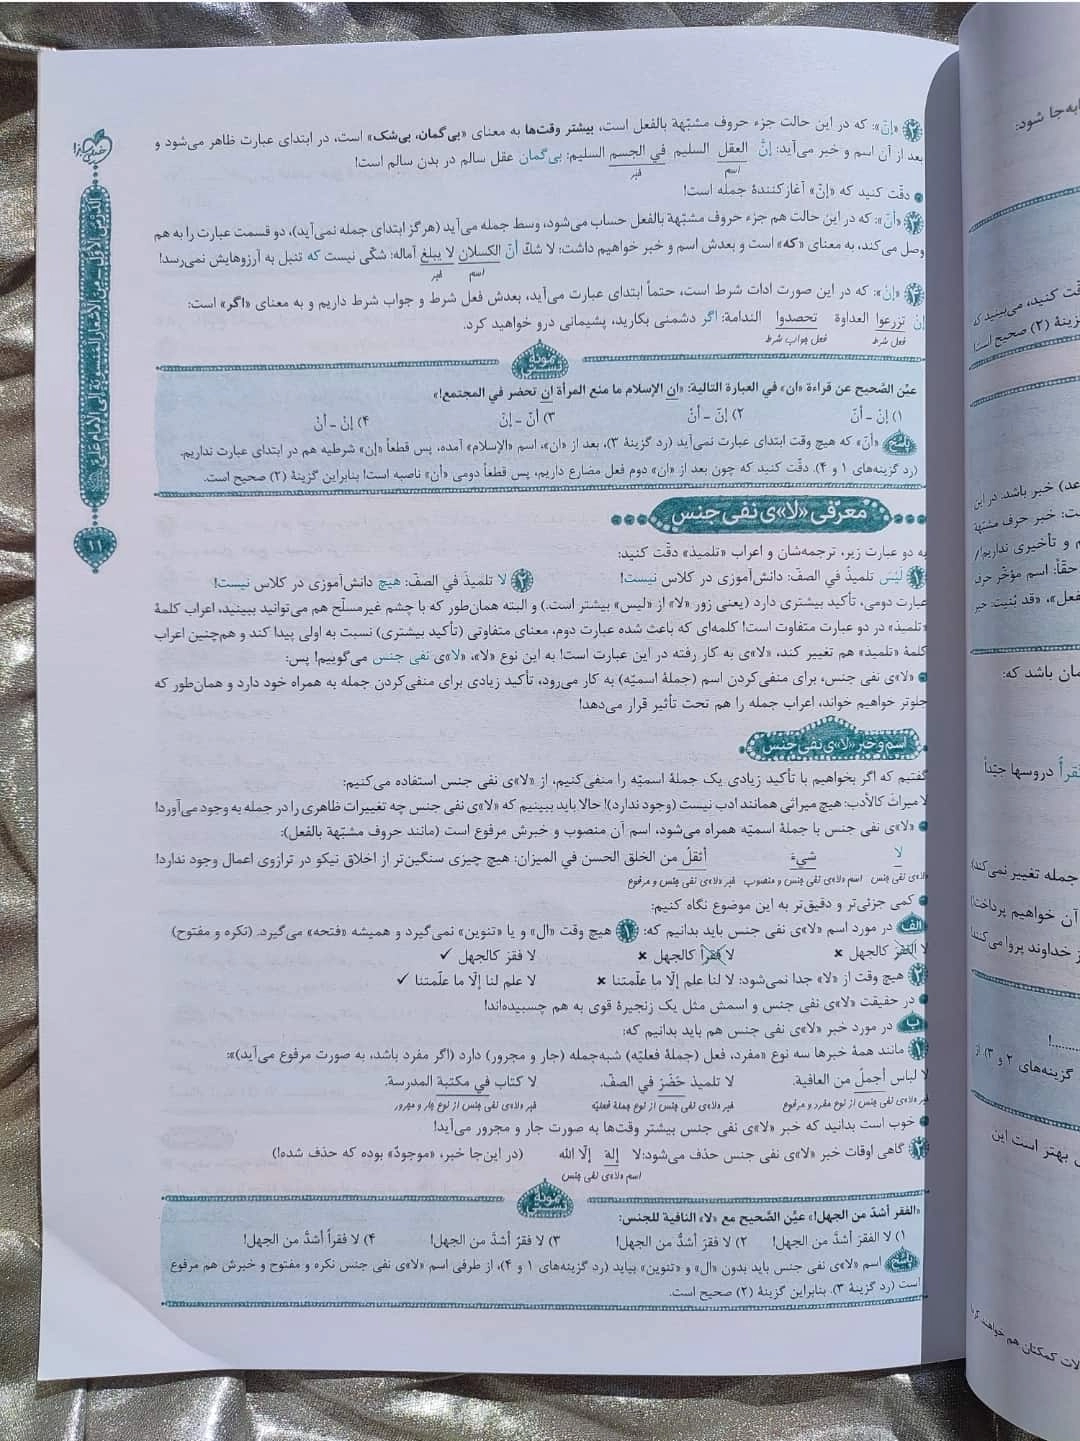 ۲ «إنّ»: که در این حالت جزء حروف مشبّهة بالفعل است، بیشتر وقت‌ها به معنای «بی‌گمان، بی‌شک» است، در ابتدای عبارت ظاهر می‌شود و
بعد از آن اسم و خبر می‌آید: إنَّ العقل السلیم في الجسم السلیم: بی‌گمان عقل سالم در بدن سالم است!
اسم خبر
دقّت کنید که «إنّ» آغازکنندهٔ جمله است!
«أنّ»: که در این حالت هم جزء حروف مشبّهة بالفعل حساب می‌شود، وسط جمله می‌آید (هرگز ابتدای جمله نمی‌آید)، دو قسمت عبارت را به هم
وصل می‌کند، به معنای «که» است و بعدش اسم و خبر خواهیم داشت: لا شكّ أنّ الكسلان لا يبلغ آماله: شکّی نیست که تنبل به آرزوهایش نمی‌رسد!
اسم خبر
«إنْ»: که در این صورت ادات شرط است، حتماً ابتدای عبارت می‌آید، بعدش فعل شرط و جواب شرط داریم و به معنای «اگر» است:
إنْ تزرعوا العداوة تحصدوا الندامة: اگر دشمنی بکارید، پشیمانی درو خواهید کرد.
فعل شرط فعل جواب شرط
نمونه تستی
عيّن الصّحيح عن قراءة «ان» في العبارة التالية: «ان الإسلام ما منع المرأة ان تحضر في المجتمع!»
۱) إنْ - أنّ ۲) إنّ - أنْ ۳) أنّ - إنْ ۴) إنْ - أنْ
پاسخ «أنّ» که هیچ وقت ابتدای عبارت نمی‌آید (رد گزینهٔ ۳)، بعد از «ان»، اسم «الإسلام» آمده، پس قطعاً «إن» شرطیه هم در ابتدای عبارت نداریم.
(رد گزینه‌های ۱ و ۴). دقّت کنید که چون بعد از «ان» دوم فعل مضارع داریم، پس قطعاً دومی «أن» ناصبه است! بنابراین گزینهٔ (۲) صحیح است.
معرّفی «لا»ی نفی جنس
به دو عبارت زیر، ترجمه‌شان و اعراب «تلمیذ» دقّت کنید:
۱ لَیْسَ تلمیذٌ في الصفّ: دانش‌آموزی در کلاس نیست! ۲ لا تلمیذَ في الصفّ: هیچ دانش‌آموزی در کلاس نیست!
عبارت دومی، تأکید بیشتری دارد (یعنی زور «لا» از «لیس» بیشتر است.) و البته همان‌طور که با چشم غیرمسلّح هم می‌توانید ببینید، اعراب کلمهٔ
«تلمیذ» در دو عبارت متفاوت است! کلمه‌ای که باعث شده عبارت دوم، معنای متفاوتی (تأکید بیشتری) نسبت به اولی پیدا کند و هم‌چنین اعراب
کلمهٔ «تلمیذ» هم تغییر کند، «لا»ی به کار رفته در این عبارت است! به این نوع «لا»، «لا»ی نفی جنس می‌گوییم! پس:
«لا»ی نفی جنس، برای منفی‌کردن اسم (جملهٔ اسمیّه) به کار می‌رود، تأکید زیادی برای منفی‌کردن جمله به همراه خود دارد و همان‌طور که
جلوتر خواهیم خواند، اعراب جمله را هم تحت تأثیر قرار می‌دهد!
اسم و خبر «لا»ی نفی جنس
گفتیم که اگر بخواهیم با تأکید زیادی یک جملهٔ اسمیّه را منفی‌کنیم، از «لا»ی نفی جنس استفاده می‌کنیم:
لا میراثَ کالأدب: هیچ میراثی همانند ادب نیست (وجود ندارد)! حالا باید ببینیم که «لا»ی نفی جنس چه تغییرات ظاهری را در جمله به وجود می‌آورد!
«لا»ی نفی جنس با جملهٔ اسمیّه همراه می‌شود، اسم آن منصوب و خبرش مرفوع است (مانند حروف مشبّهة بالفعل):
لا شيءَ أثقلُ من الخلق الحسن في الميزان: هیچ چیزی سنگین‌تر از اخلاق نیکو در ترازوی اعمال وجود ندارد!
«لا»ی نفی جنس اسم «لا»ی نفی جنس و منصوب خبر «لا»ی نفی جنس و مرفوع
کمی جزئی‌تر و دقیق‌تر به این موضوع نگاه کنیم:
الف در مورد اسم «لا»ی نفی جنس باید بدانیم که: ۱ هیچ وقت «ال» و یا «تنوین» نمی‌گیرد و همیشه «فتحه» می‌گیرد. (نکره و مفتوح)
لا الفقرَ کالجهل ✖ لا فقراً کالجهل ✖ لا فقرَ کالجهل ✓
۲ هیچ وقت از «لا» جدا نمی‌شود: لا لنا علم إلّا ما علّمتنا ✖ لا علم لنا إلّا ما علّمتنا ✓
در حقیقت «لا»ی نفی جنس و اسمش مثل یک زنجیرهٔ قوی به هم چسبیده‌اند!
ب در مورد خبر «لا»ی نفی جنس هم باید بدانیم که:
۱ مانند همهٔ خبرها سه نوع «مفرد، فعل (جملهٔ فعلیّه) شبه‌جمله (جار و مجرور) دارد (اگر مفرد باشد، به صورت مرفوع می‌آید)»:
لا لباس أجملُ من العافية. لا تلميذ حَضَرَ في الصفّ. لا كتاب في مكتبة المدرسة.
خبر «لا»ی نفی جنس از نوع مفرد و مرفوع خبر «لا»ی نفی جنس از نوع جملهٔ فعلیّه خبر «لا»ی نفی جنس از نوع جار و مجرور
خوب است بدانید که خبر «لا»ی نفی جنس بیشتر وقت‌ها به صورت جار و مجرور می‌آید!
۲ گاهی اوقات خبر «لا»ی نفی جنس حذف می‌شود: لا إله إلّا الله (در این‌جا خبر، «موجودٌ» بوده که حذف شده!)
اسم «لا»ی نفی جنس
نمونه تستی
«الفقر أشدّ من الجهل!» عيّن الصّحيح مع «لا» النافية للجنس:
۱) لا الفقرَ أشدَّ من الجهل! ۲) لا فقرَ أشدُّ من الجهل! ۳) لا فقرُ أشدَّ من الجهل! ۴) لا فقراً أشدُّ من الجهل!
پاسخ اسم «لا»ی نفی جنس باید بدون «ال» و «تنوین» بیاید (رد گزینه‌های ۱ و ۴)، از طرفی اسم «لا»ی نفی جنس نکره و مفتوح و خبرش هم مرفوع
است (رد گزینهٔ ۳). بنابراین گزینهٔ (۲) صحیح است.
الدرس الأوّل - من الأشعار المنسوبة إلى الإمام عليّ
۱۱
خیلی سبز
به‌جا شود:
گزینه‌های ۲ و ۳). از
ی بهتر است این